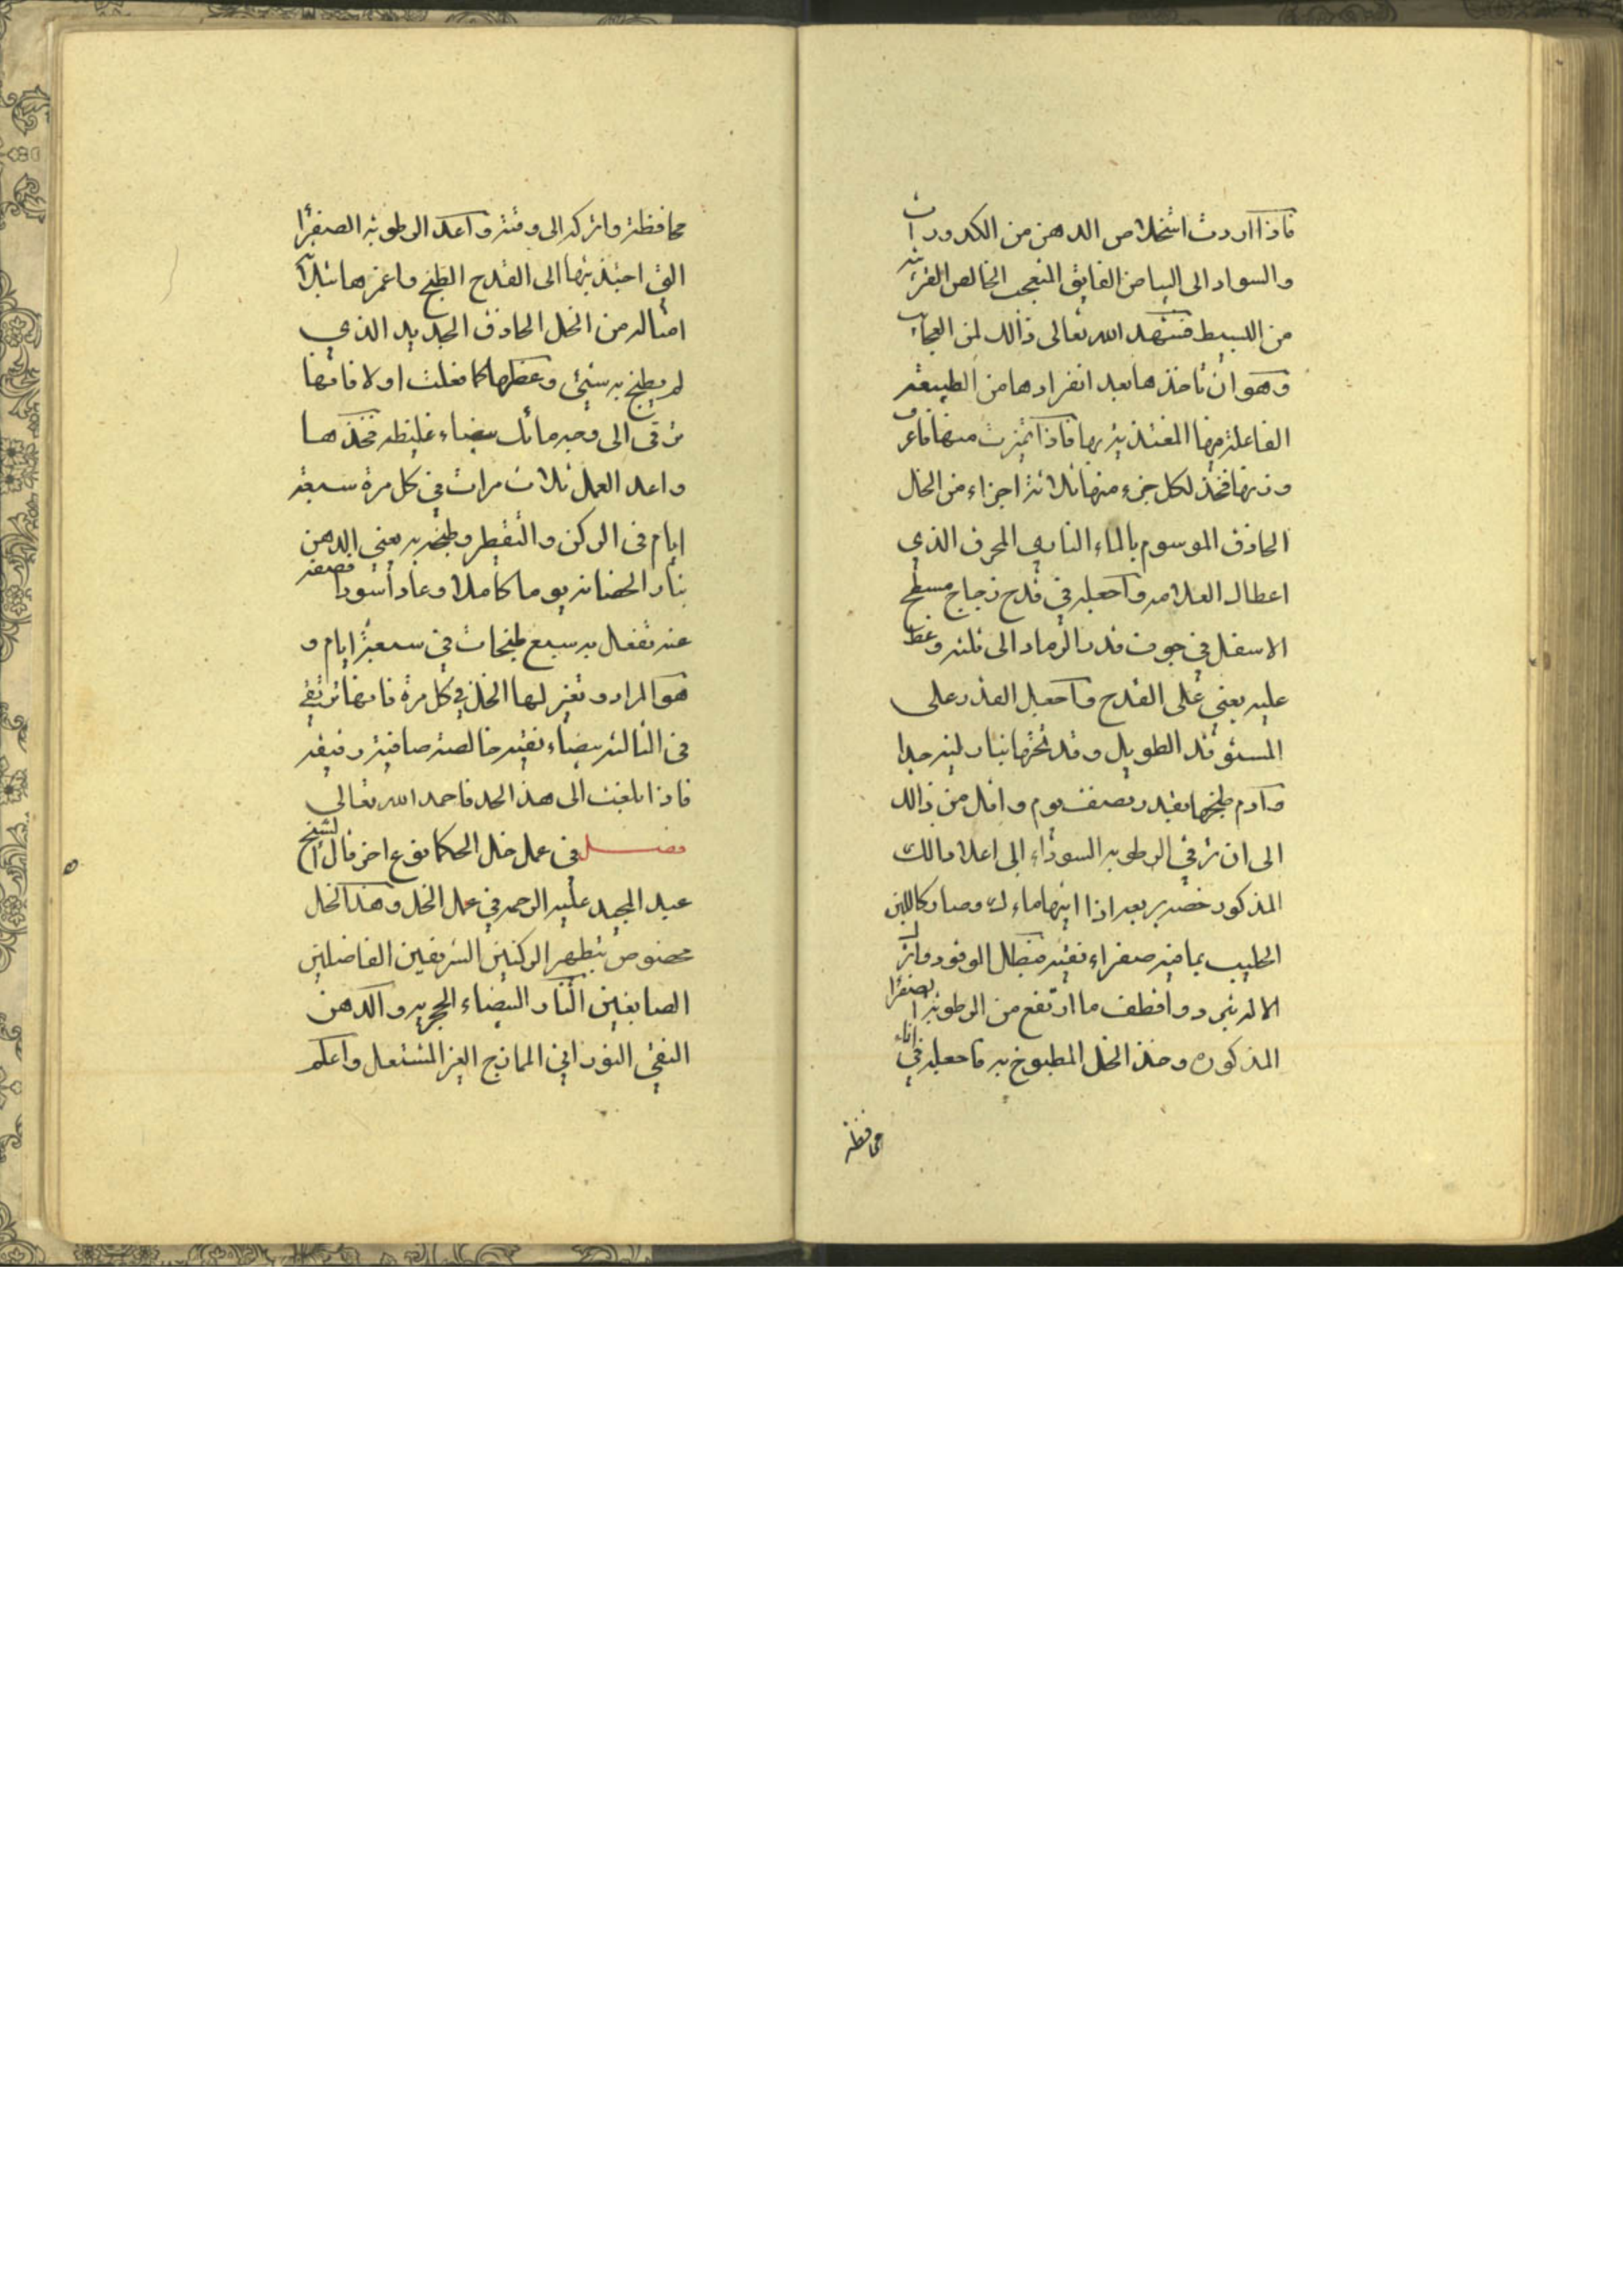 فاذا اردت استخلاص الدهن من الكدورات
والسواد الى البياض الفايق المتعجب الخالص القريب
من البسيط فشهد الله تعالى ذالك لمن العجايب
وهو ان تاخذها بعد انفرادها من الطبيعة
الفاعلة فيها المغتذية بها فاذا تميزت منها فاعرف
وزنها فخذ لكل جزء منها ثلاثة اجزاء من الخل
الحاذق الموسوم بالماء الناري المحرق الذي
اعطاك العلامه واجعله في قدح زجاج مسطح
الاسفل في جوف قدر الرماد الى ثلثه وغط
عليه يعني على القدح واجعل القدر على
المستوقد الطويل وقد تحتها بنار لينه جدا
وادم طبخها بقدر نصف يوم واقل من ذالك
الى ان ترقى الرطوبه السوداء الى اعلا مالك
المذكور خضريه بعد اذا ابيضا ماءك وصار كاللبن
الحليب بما فيه صفراء نقيه فبطل الوقود واترك
الاله تبرد واقطف ما ارتفع من الرطوبة الصفرا
المذكوره وخذ الخل المطبوخ به فاجعله في اناء
محافظة
محافظة واتركه الى وقته واعد الرطوبة الصفرا
التي اجتذبتها الى القدح الطبخ واغمرها بثلاثة
امثاله من الخل الحاذق الجديد الذي
لم يطبخ به شيئ وعظمها كما فعلت اولا فانها
ترقى الى وجه مائك بيضاء غليظه فخذها
واعد العمل ثلاث مرات في كل مرة سبعة
ايام في الركن والتقطير وطبخه به يعني الدهن
بنار الحضانه يوما كاملا وعاد اسودا فصفه
عنه تفعل به سبع طبخات في سبعة ايام و
هو المراد وتغير لها الخل في كل مرة فانها ترتقي
في الثالثه بيضاء نقيه خالصه صافية رقيقه
فاذا بلغت الى هذ الحد فاحمد الله تعالى
فصل في عمل خل الحكما نوع اخر قال الشيخ
عبد المجيد عليه الرحمه في عمل الخل وهذا الخل
مخصوص بتطهير الركنين الشريفين الفاضلين
الصابغين النار البيضاء الحجريه والدهن
النقي النوراني الممازج الغير المشتعل واعلم